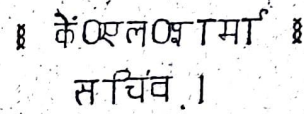 ॥ के०एल०शर्मा ॥
सचिव.।